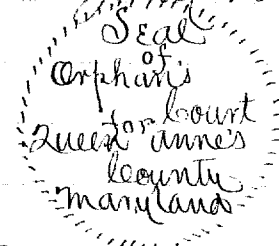 Seal
of
Orphan's
Court
for
Queen Anne's
County
Maryland